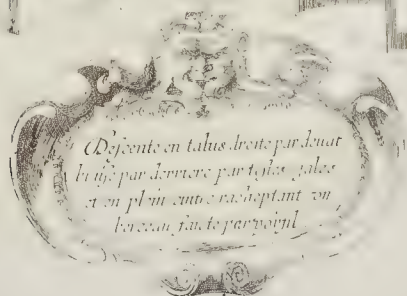 Descente en talus droite par deuat
biaise par derriere par testes
et en plein cintre racheptant vn
berceau faicte par